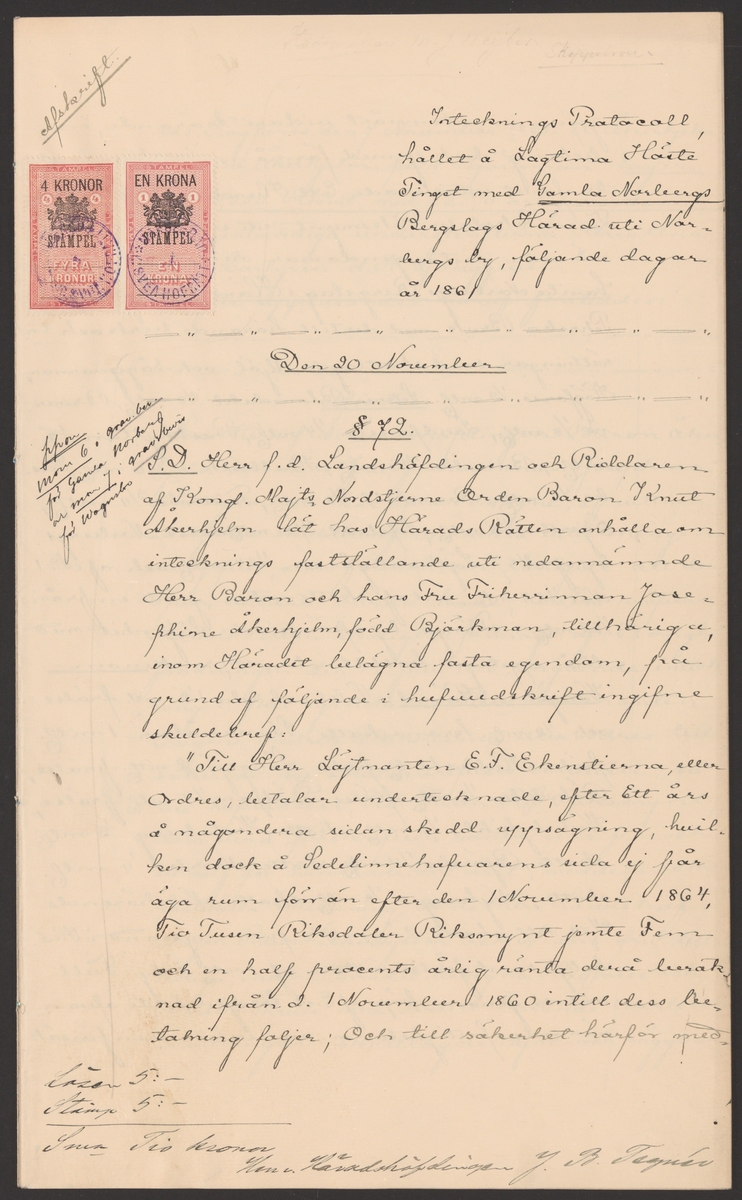 Afskrift.
Intecknings Protocoll,
hållet å Lagtima Höste
Tinget med Gamla Norbergs
Bergslags Härad uti Nor-
bergs by, följande dagar
år 1861
4 KRONOR
STÄMPEL
FYRA
KRONOR
EN KRONA
STÄMPEL
EN
KRONA
Den 20 November
§ 72.
mom 6 i
för Gamla Norberg
för Wagnsbo
S. D. Herr f. d. Landshöfdingen och Riddaren
af Kongl. Majts Nordstjerne Orden Baron Knut
Åkerhjelm lät hos Härads Rätten anhålla om
intecknings fastställande uti nedannämnde
Herr Baron och hans Fru Friherrinnan Jose-
phine Åkerhjelm, född Björkman, tillhöriga,
inom Häradet belägna fasta egendom, på
grund af följande i hufvudskrift ingifne
skuldebref:
"Till Herr Löjtnanten E. F. Ekenstierna, eller
Ordres, betalar undertecknade, efter Ett års
å någondera sidan skedd uppsägning, hvil-
ken dock å Sedelinnehafvarens sida ej får
äga rum förr än efter den 1 November 1864,
Tio Tusen Riksdaler Riksmynt jemte Fem
och en half procents årlig ränta derå beräk-
nad ifrån d. 1 November 1860 intill dess be-
talning följer; Och till säkerhet härför med-
Lösen 5:-
Stämp 5:-
Sma Tio kronor
Herr Häradshöfdingen J. B. Tegnér